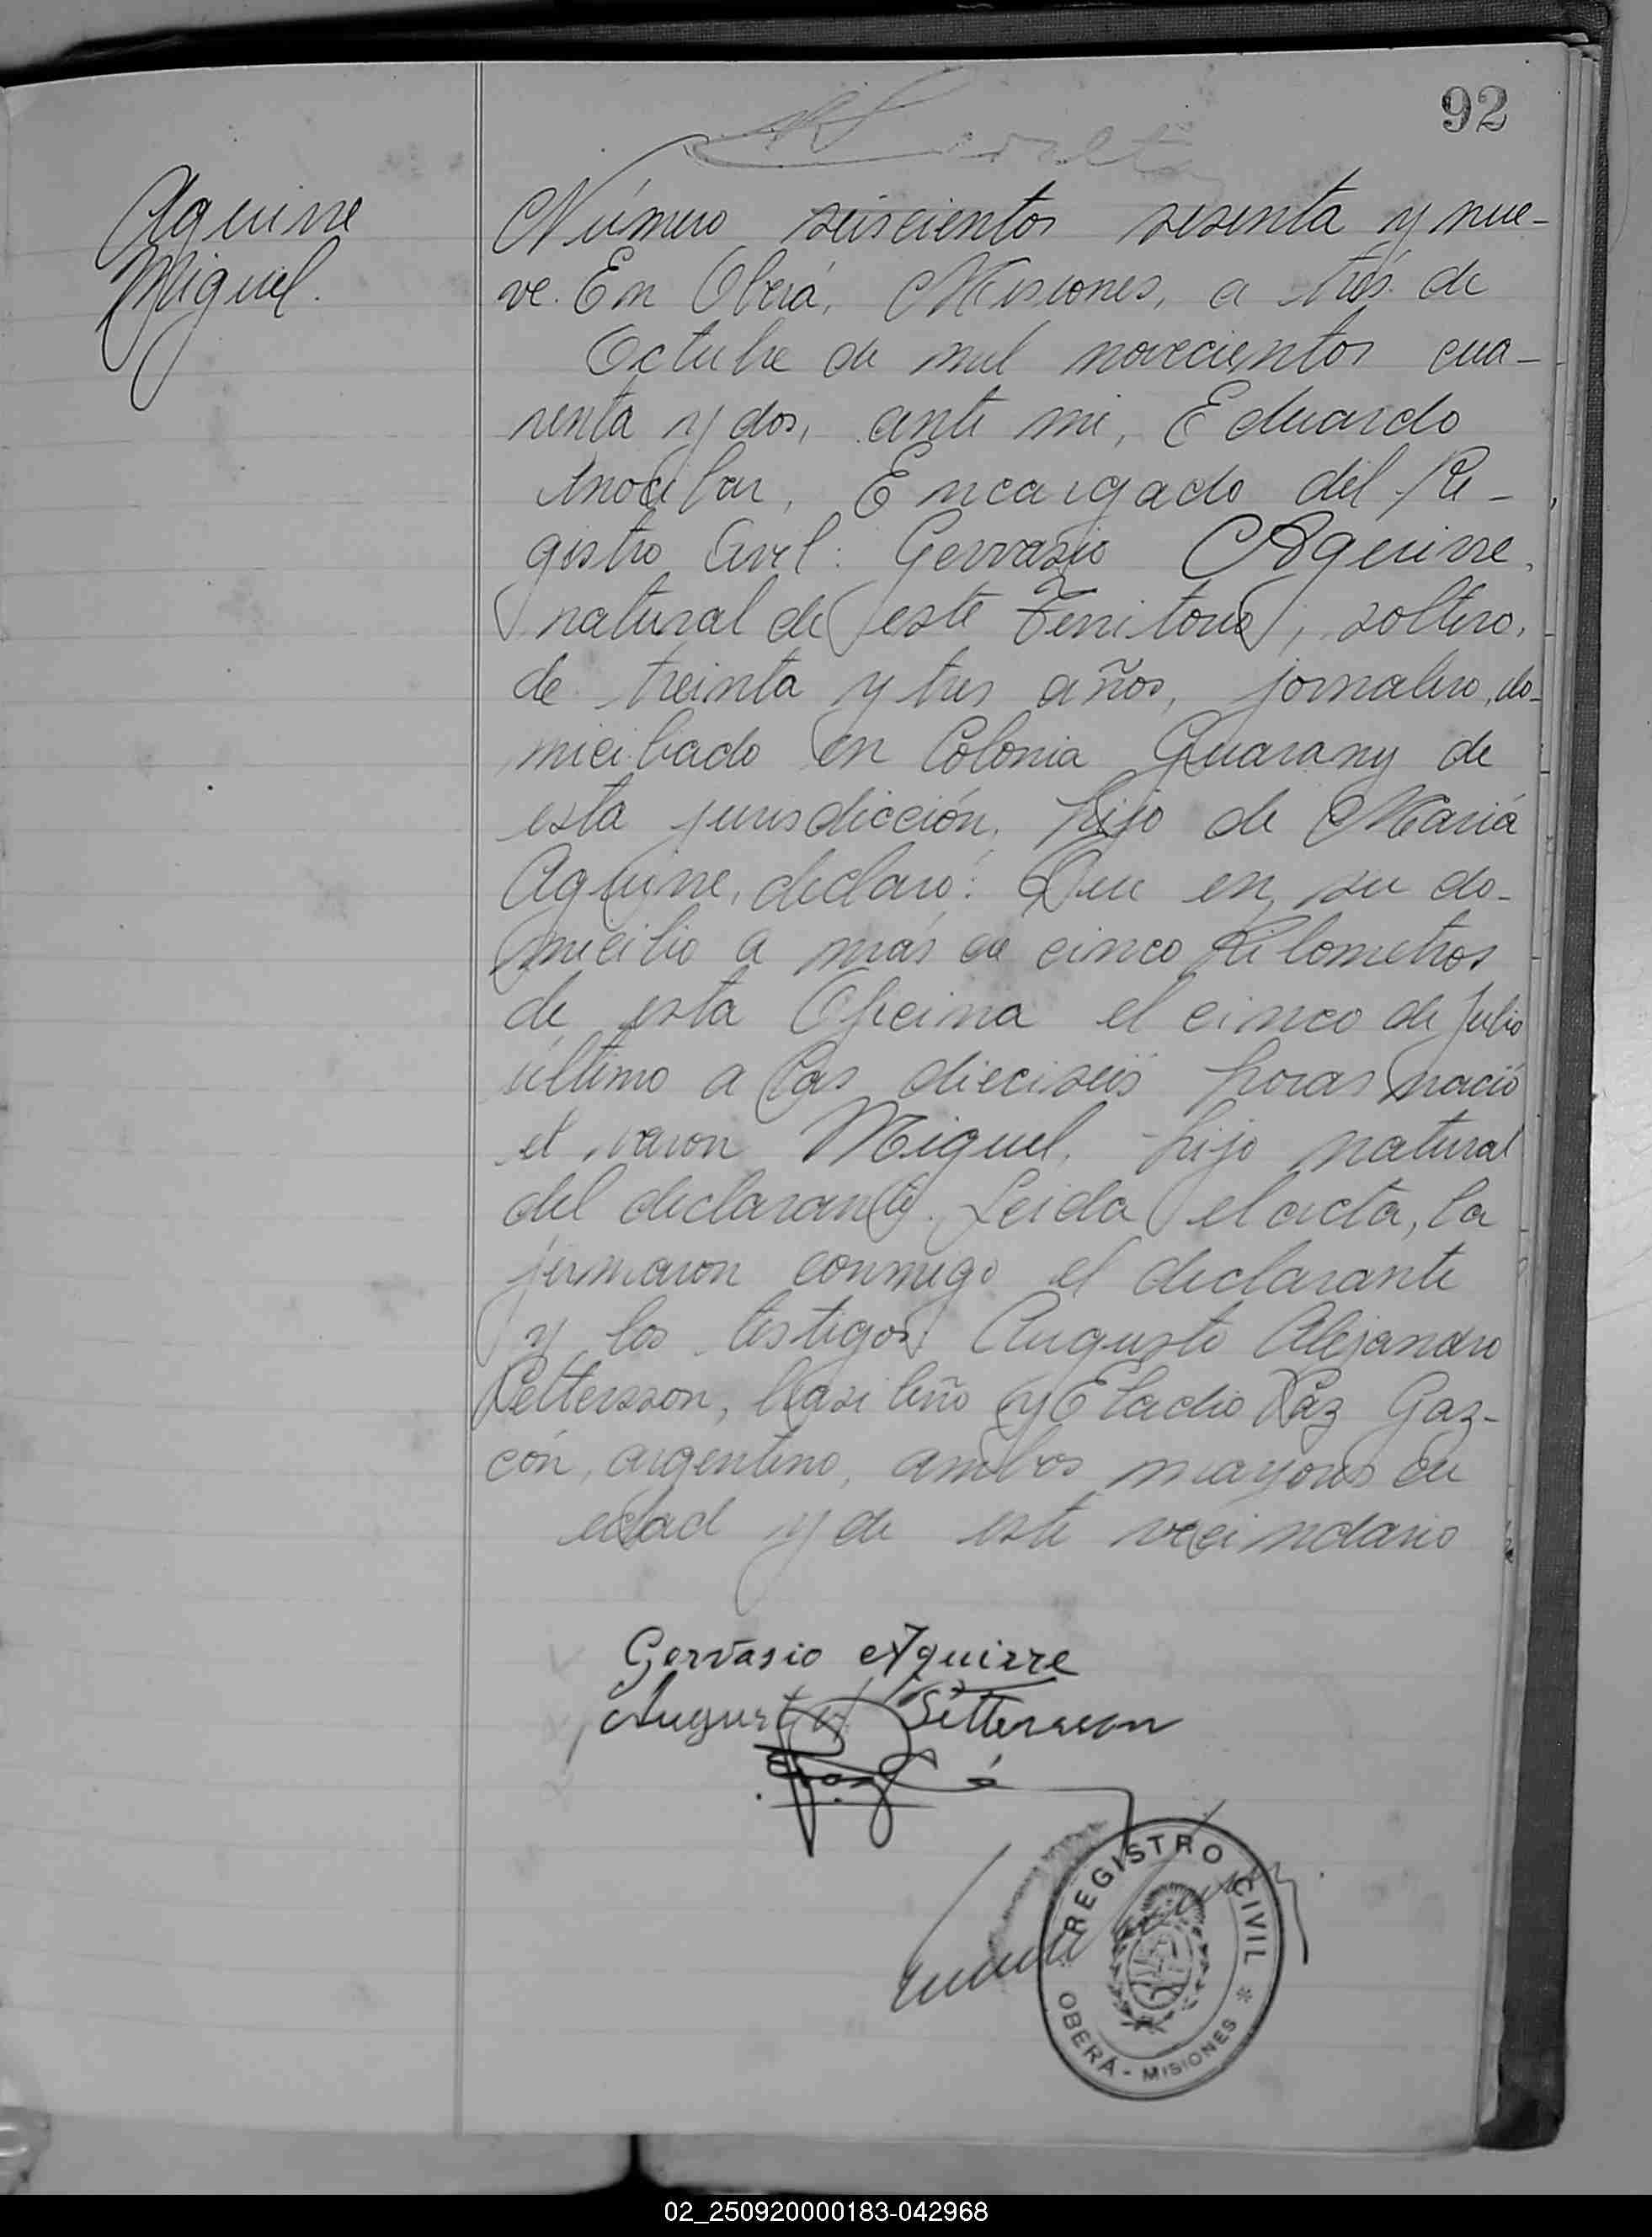 92
Aguirre
Miguel.
Número seiscientos sesenta y nue-
ve. En Oberá, Misiones, a tres de
Octubre de mil novecientos cua-
renta y dos, ante mi, Eduardo
Encargado del Re-
gistro Civil: Gervasio Aguirre,
natural de este Territorio, soltero,
de treinta y tres años, jornalero, do-
miciliado en Colonia Guarany de
esta jurisdicción, hijo de María
Aguirre, declaró: Que en su do-
micilio a más de cinco Kilometros
de esta Oficina el cinco de Julio
último a las dieciseis horas nació
el varon Miguel, hijo natural
del declarante. Leida el acta, la
firmaron conmigo el declarante
y los testigos Augusto Alejandro
Pettersson, brasileño y Eladio Paz Gaz-
cón, argentino, ambos mayores de
edad y de este vecindario
Gervasio Aguirre
August A Pettersson
REGISTRO CIVIL
OBERÁ - MISIONES *
02_250920000183-042968